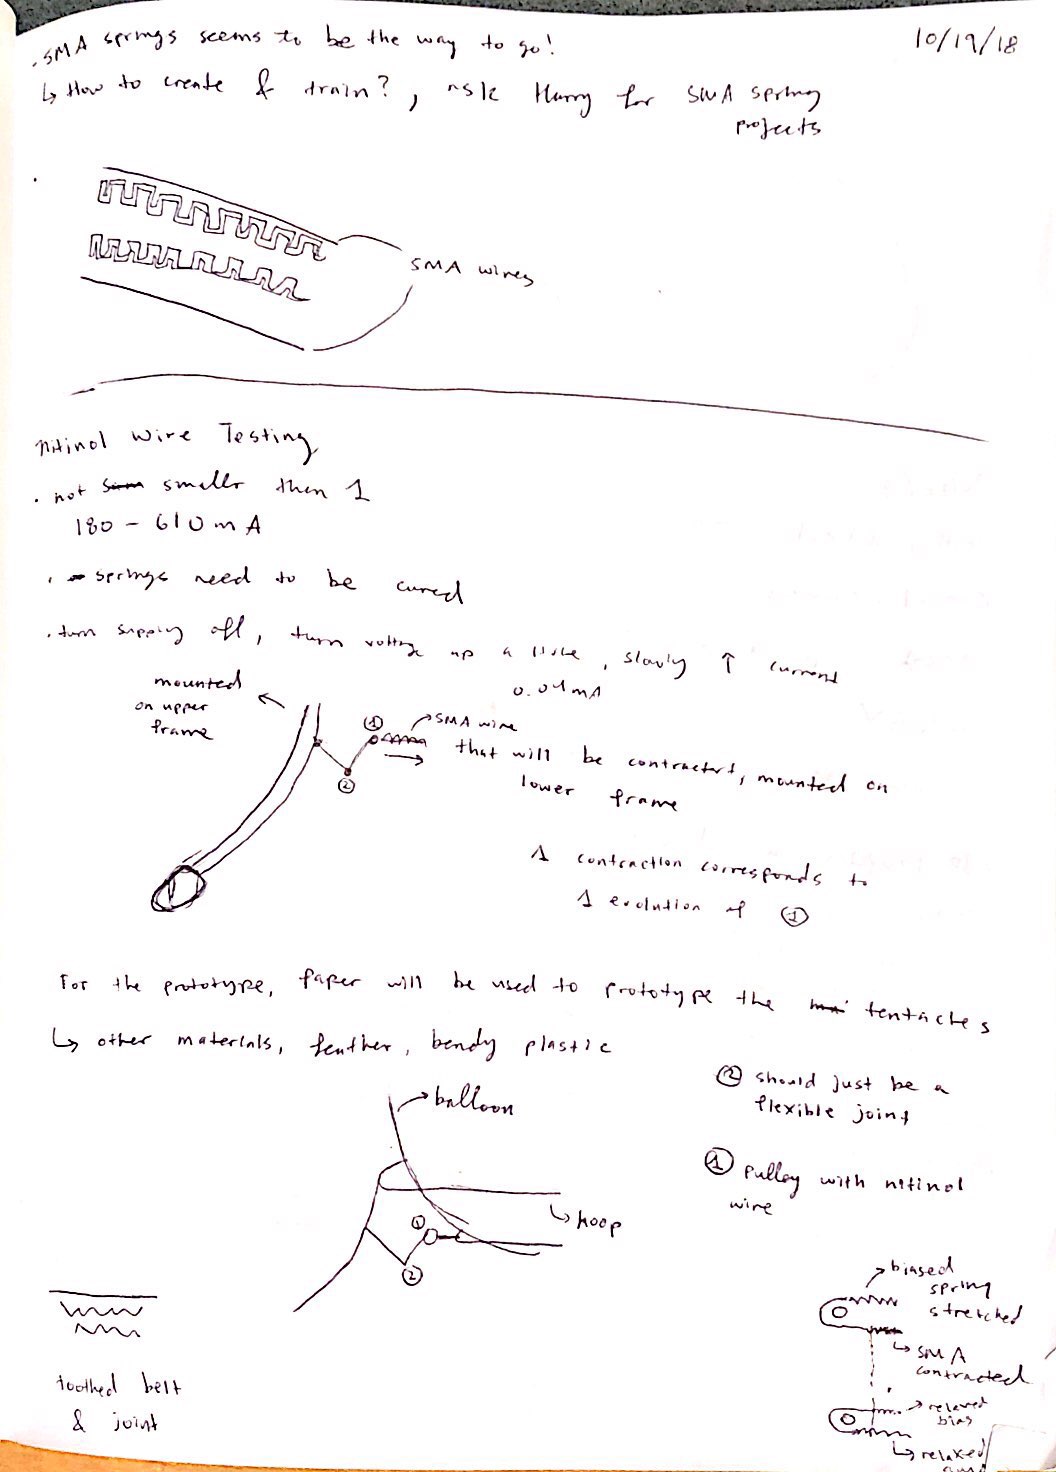 10/19/18
. SMA springs seems to be the way to go!
↳ How to create & train?, ask Harry for SMA spring
projects
.
SMA wires
Nitinol Wire Testing
. not smaller then 1
180 - 610 mA
. springs need to be cured
. turn supply off, turn voltage up a little, slowly ↑ current
0.04mA
mounted
on upper
frame
①
SMA wire
that will be contracted, mounted on
lower frame
②
1 contraction corresponds to
1 evolution of ①
For the prototype, paper will be used to prototype the tentacles
↳ other materials, feather, bendy plastic
② should just be a
flexible joint
balloon
① pulley with nitinol
wire
hoop
①
②
biased
spring
stretched
SMA
contracted
toothed belt
& joint
relaxed
bias
relaxed